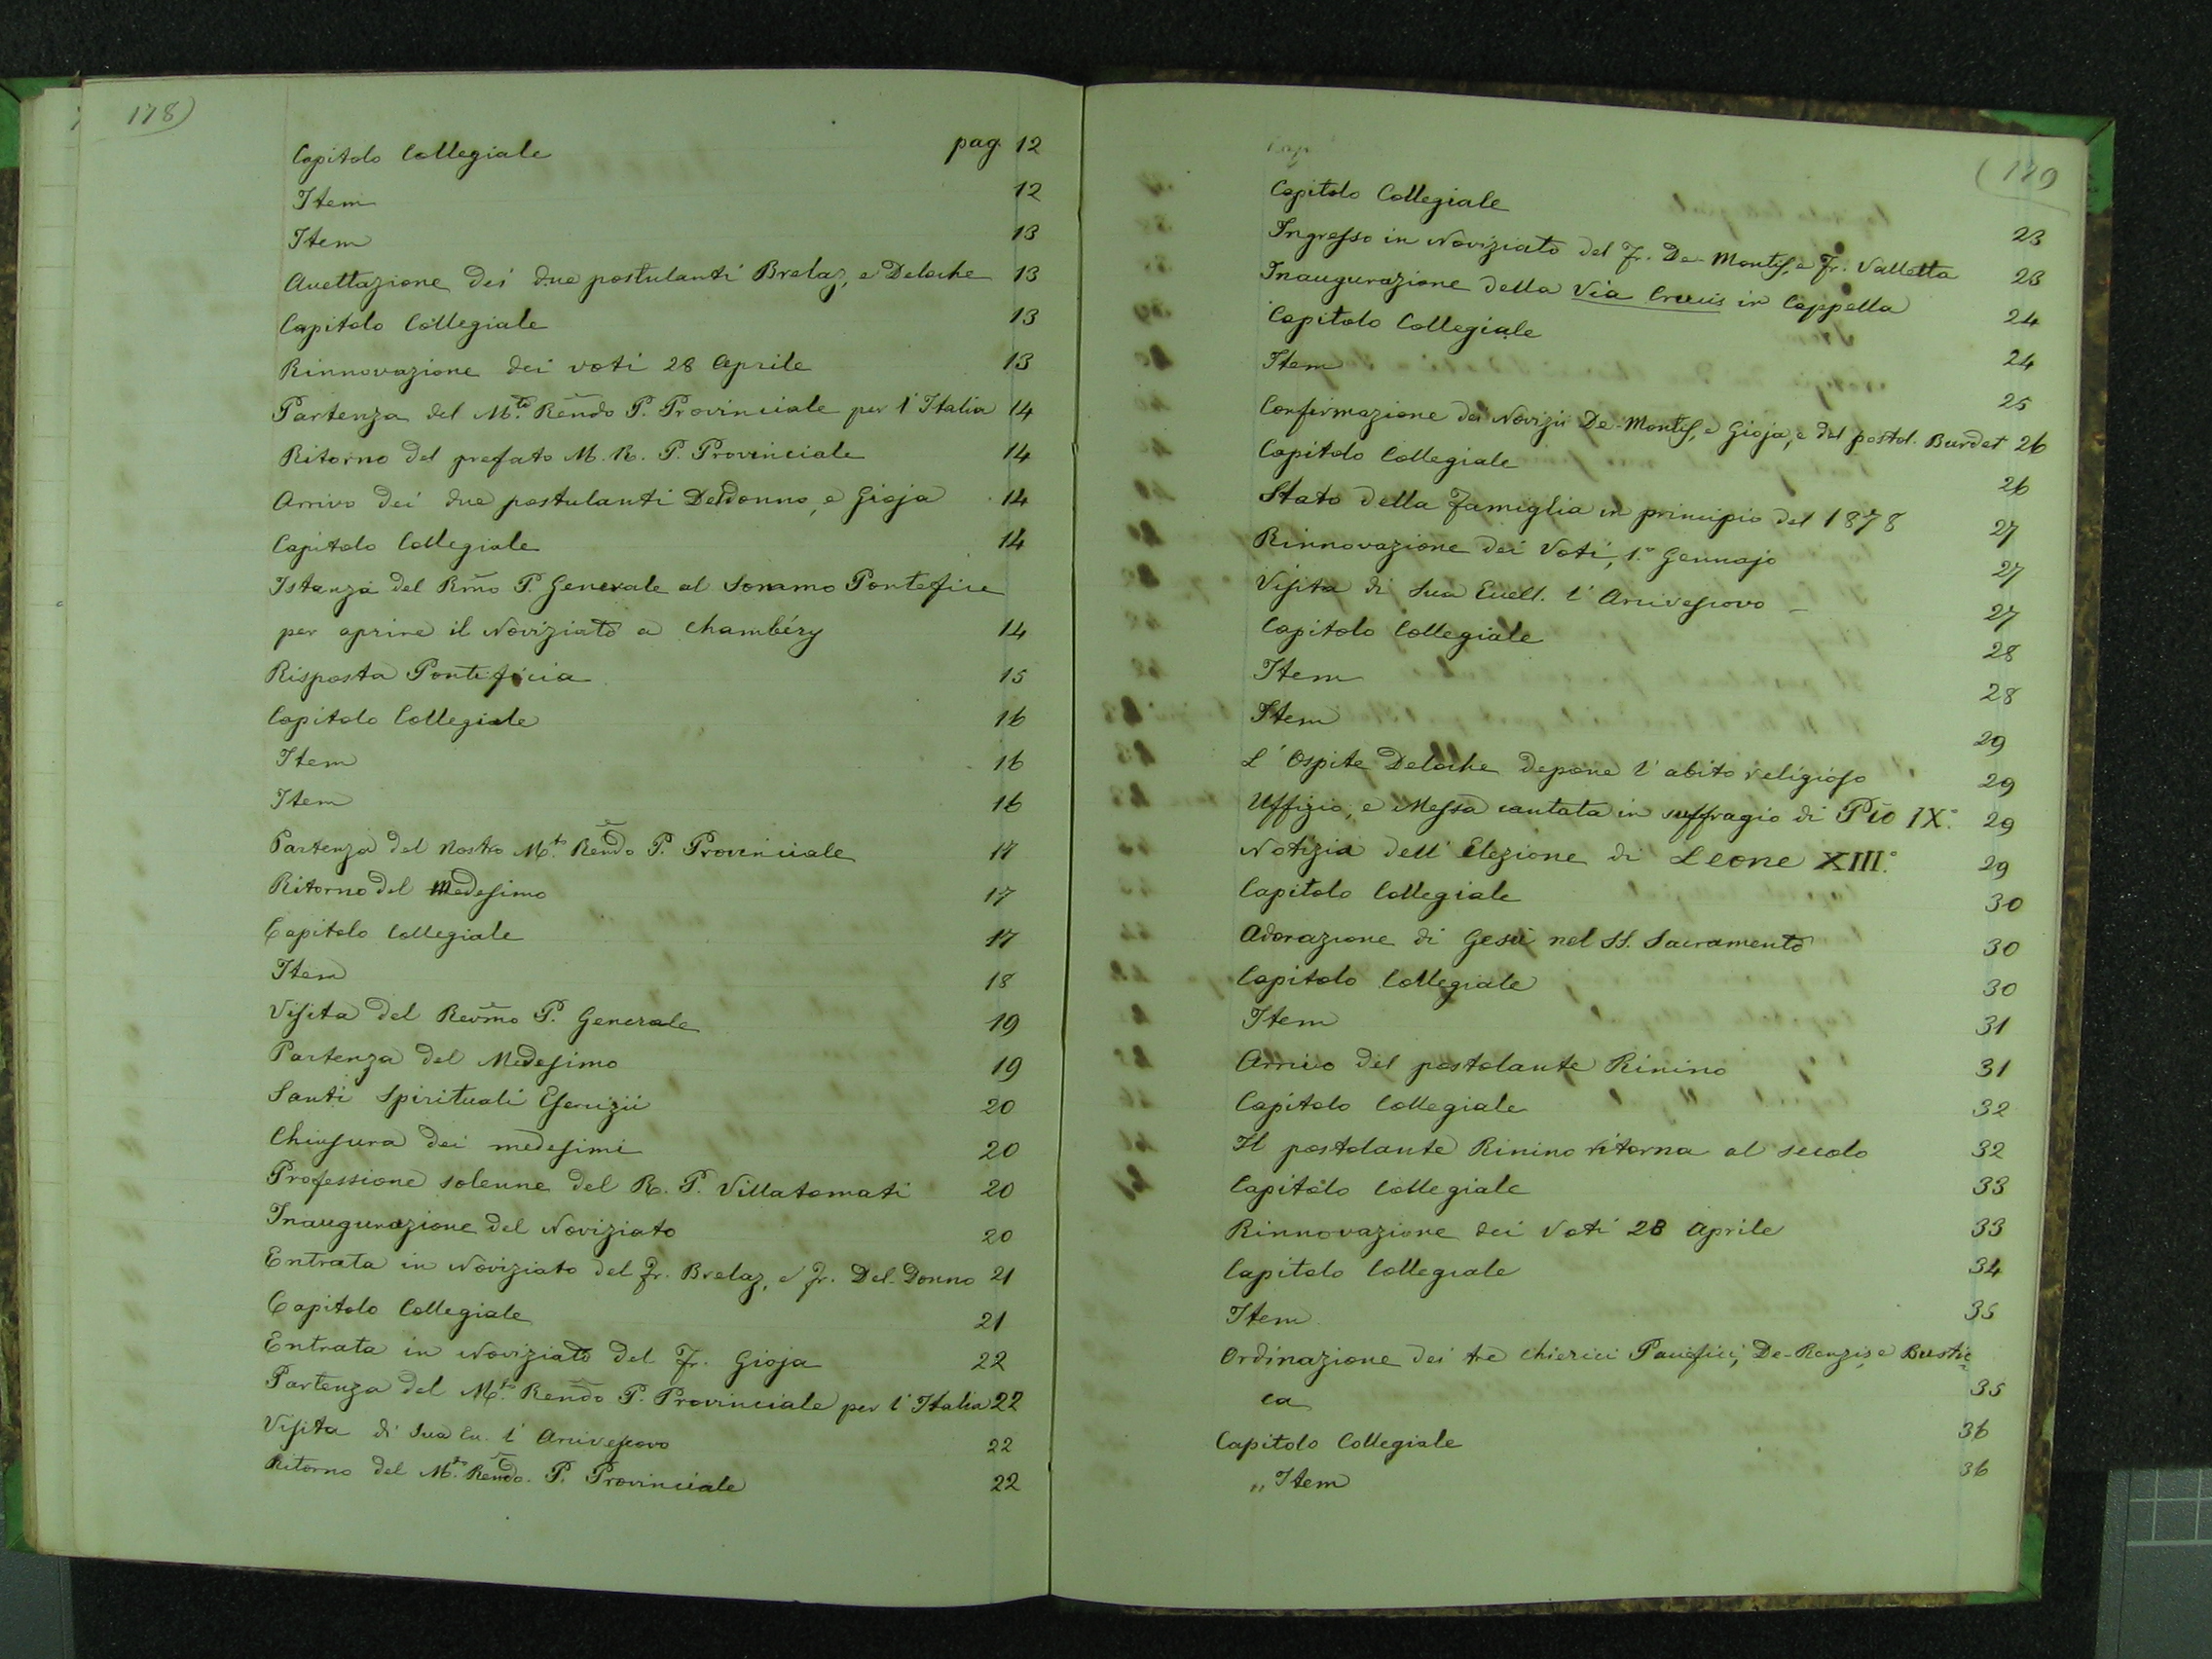 178)
Capitolo Collegiale pag. 12
Item 12
Item 13
Accettazione dei due postulanti Brelaz, e Deloche 13
Capitolo Collegiale 13
Rinnovazione dei voti 28 Aprile 13
Partenza del M.to Rendo P. Provinciale per l'Italia 14
Ritorno del prefato M. R. P. Provinciale 14
Arrivo dei due postulanti Deldonno, e Gioja 14
Capitolo Collegiale 14
Istanza del Rmo P. Generale al Sommo Pontefice
per aprire il Noviziato a Chambéry 14
Risposta Pontificia 15
Capitolo Collegiale 16
Item 16
Item 16
Partenza del Nostro M.to Rendo P. Provinciale 17
Ritorno del Medesimo 17
Capitolo Collegiale 17
Item 18
Visita del Revmo P. Generale 19
Partenza del Medesimo 19
Santi Spirituali Esercizii 20
Chiusura dei medesimi 20
Professione solenne del R. P. Villatomati 20
Inaugurazione del Noviziato 20
Entrata in Noviziato del Fr. Brelaz, e Fr. Del-Donno 21
Capitolo Collegiale 21
Entrata in Noviziato del Fr. Gioja 22
Partenza del M.to Rendo P. Provinciale per l'Italia 22
Visita di Sua Ec. l'Arcivescovo 22
Ritorno del M.to Rendo. P. Provinciale 22
(179
Cap
Capitolo Collegiale 23
Ingresso in Noviziato del Fr. De-Montis, e Fr. Valletta 23
Inaugurazione della Via Crucis in Cappella 24
Capitolo Collegiale 24
Item 25
Confirmazione dei Novizii De-Montis, e Gioja, e del postul. Burdet 26
Capitolo Collegiale 26
Stato della Famiglia in principio del 1878 27
Rinnovazione dei Voti, 1.° Gennajo 27
Visita di Sua Eccell. l'Arcivescovo - 27
Capitolo Collegiale 28
Item 28
Item 29
L'Ospite Deloche depone l'abito religioso 29
Uffizio, e Messa cantata in suffragio di Pio IX.° 29
Notizia dell'Elezione di Leone XIII.° 29
Capitolo Collegiale 30
Adorazione di Gesù nel SS. Sacramento 30
Capitolo Collegiale 30
Item 31
Arrivo del postolante Rinino 31
Capitolo Collegiale 32
Il postolante Rinino ritorna al secolo 32
Capitolo Collegiale 33
Rinnovazione dei Voti 28 Aprile 33
Capitolo Collegiale 34
Item 35
Ordinazione dei tre Chierici Pacifici, De-Renzis, e Bustic
ca 35
Capitolo Collegiale 36
„ Item 36